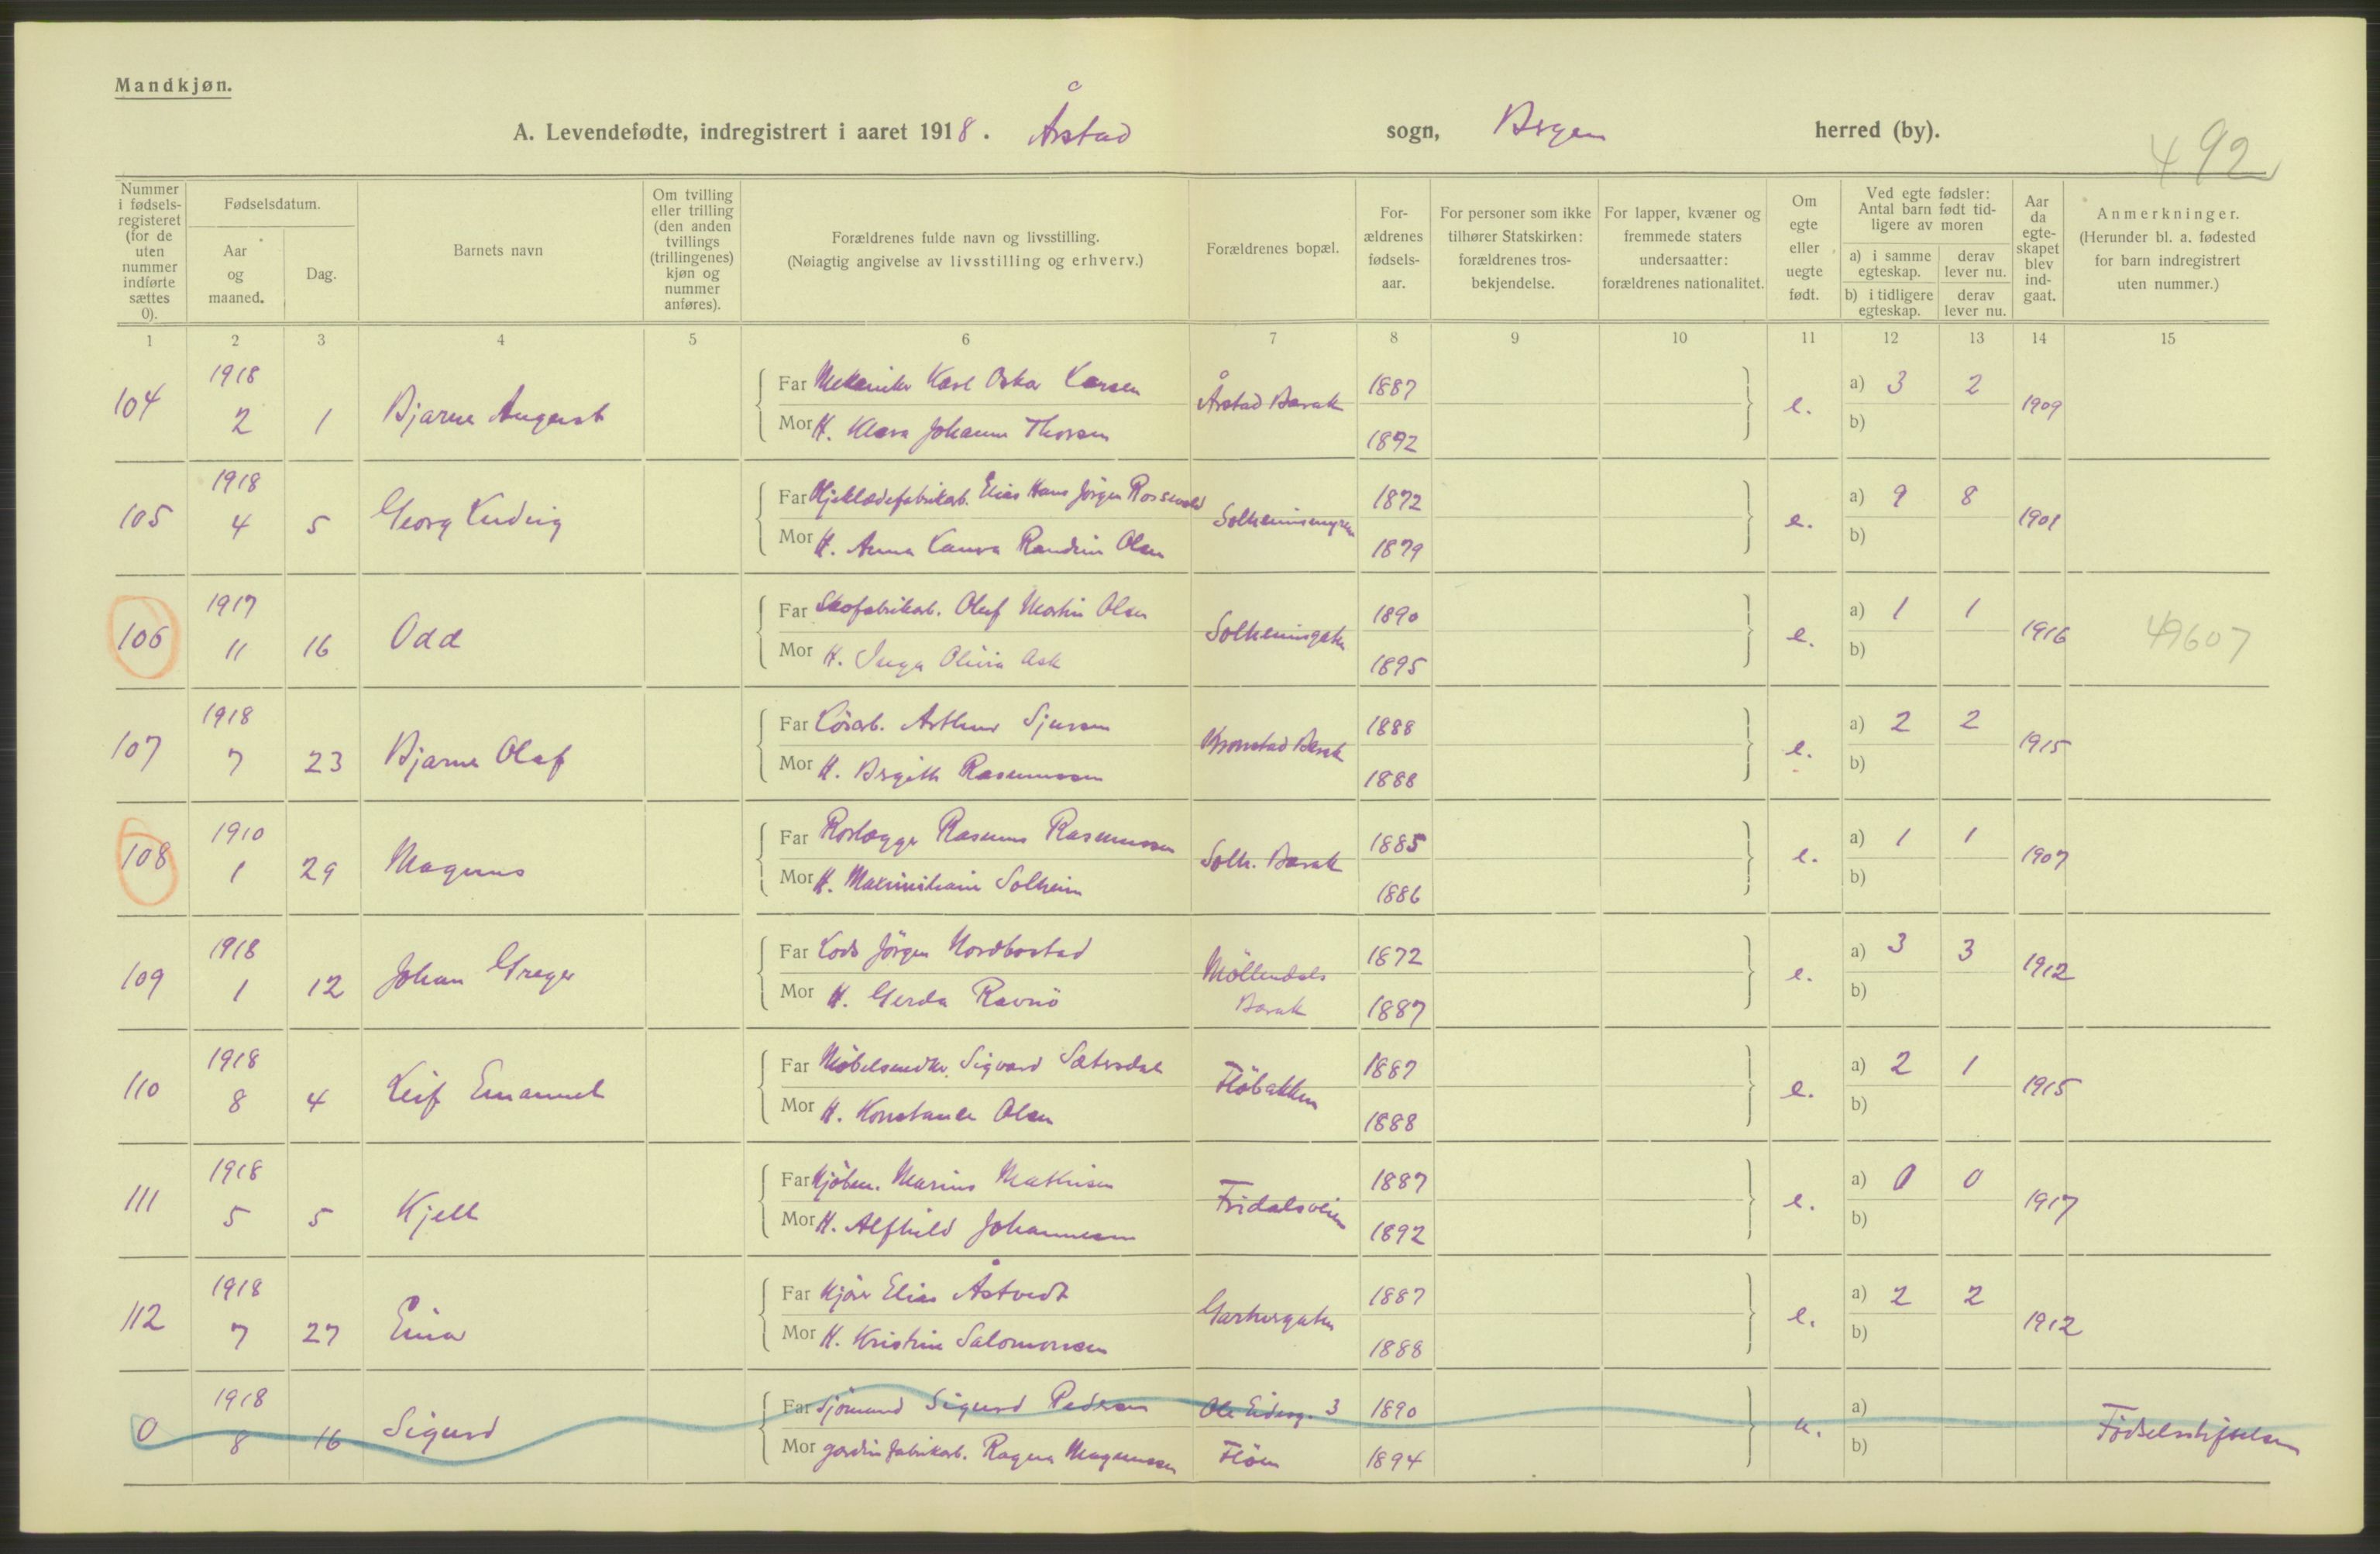 Mandkjøn.
A. Levendefødte, indregistrert i aaret 1918. Årstad sogn, Brgen herred (by).
492
Nummer i fødselsregisteret (for de uten nummer indførte sættes 0).
Fødselsdatum.
Aar og maaned.
Dag.
Barnets navn
Om tvilling eller trilling (den anden tvillings (trillingenes) kjøn og nummer anføres).
Forældrenes fulde navn og livsstilling.
(Nøiagtig angivelse av livsstilling og erhverv.)
Forældrenes bopæl.
Forældrenes fødselsaar.
For personer som ikke tilhører Statskirken: forældrenes trosbekjendelse.
For lapper, kvæner og fremmede staters undersaatter: forældrenes nationalitet.
Om egte eller uegte født.
Ved egte fødsler: Antal barn født tidligere av moren
a) i samme egteskap. derav lever nu.
b) i tidligere egteskap. derav lever nu.
Aar da egteskapet blev indgaat.
Anmerkninger.
(Herunder bl. a. fødested for barn indregistrert uten nummer.)
1 2 3 4 5 6 7 8 9 10 11 12 13 14 15
104 1918 2 1 Bjarne August
Far Mekaniker Karl Oskar Larsen Årstad Barak 1887 e. a) 3 2 1909
Mor H. Klara Johanne Thorsen 1892 b)
105 1918 4 5 Georg Ludvig
Far Oljeklædefabrikarb. Elias Hans Jörgen Rossevold Solheimsmyren 1872 e. a) 9 8 1901
Mor H. Anna Laura Randine Olsen 1879 b)
106 1917 11 16 Odd
Far Skofabrikarb. Oluf Martin Olsen Solheimsgaten 1890 e. a) 1 1 1916 49607
Mor H. Inga Olivia Ask 1895 b)
107 1918 7 23 Bjarne Olaf
Far Lösarb. Arthur Sjursen Kronstad Barak 1888 e. a) 2 2 1915
Mor H. Brgith Rasmussen 1888 b)
108 1910 1 29 Magnus
Far Rörlægger Rasmus Rasmussen Solh. Barak 1885 e. a) 1 1 1907
Mor H. Maximiliane Solheim 1886 b)
109 1918 1 12 Johan Greger
Far Lods Jörgen Nordbostad Möllendals Barak 1872 e. a) 3 3 1912
Mor H. Gerda Ravnö 1887 b)
110 1918 8 4 Leif Emanuel
Far Möbelsnedker Sigvard Sætersdal Flöbakken 1887 e. a) 2 1 1915
Mor H. Konstance Olsen 1888 b)
111 1918 5 5 Kjell
Far Kjöbm. Marius Mathisen Fridalsveien 1887 e. a) 0 0 1917
Mor H. Alfhild Johannessen 1892 b)
112 1918 7 27 Einar
Far Kjörer Elias Åstvedt Garhergaten 1887 e. a) 2 2 1912
Mor H. Kristine Salomonsen 1888 b)
0 1918 8 16 Sigurd
Far Sjömand Sigurd Pedersen Ole Eidesg. 3 1890 u. a) Födselsstiftelsen
Mor gardinfabrikarb. Ragna Magnussen Flöen 1894 b)